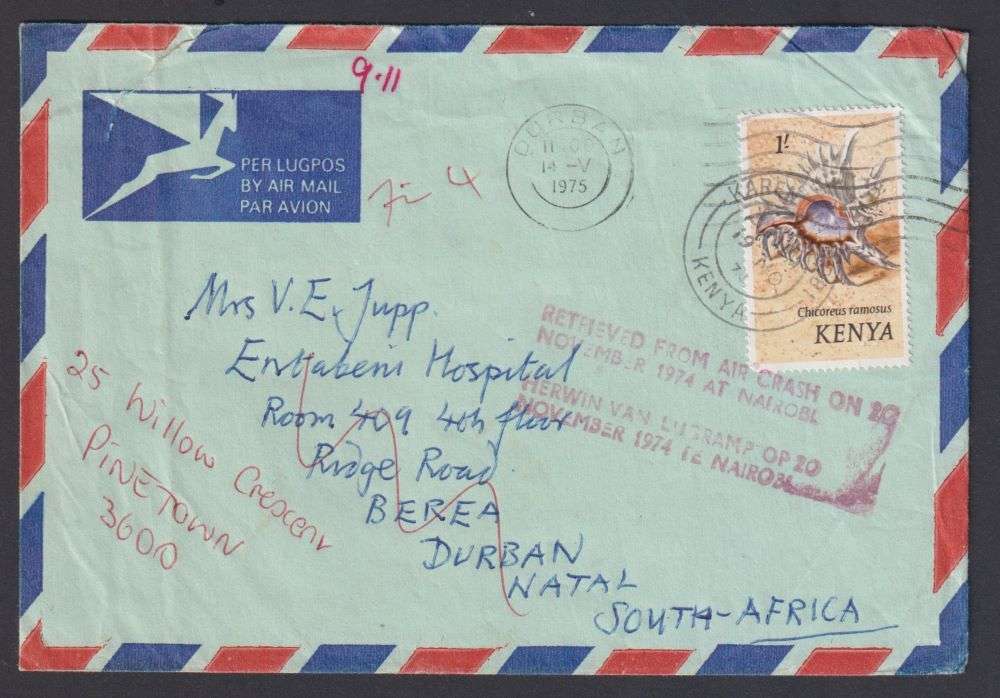 9·11
PER LUGPOS
BY AIR MAIL
PAR AVION
4
DURBAN
14 -V
1975
1/-
Chicoreus ramosus
KENYA
KAREN
19 NO
KENYA
Mrs V.E. Jupp.
Entabeni Hospital
Room 409 4th floor
Ridge Road
BEREA
DURBAN
NATAL
SOUTH-AFRICA
RETRIEVED FROM AIR CRASH ON 20
NOVEMBER 1974 AT NAIROBI.
HERWIN VAN LUGRAMP OP 20
NOVEMBER 1974 TE NAIROBI.
25 Willow Crescent
PINETOWN
3600